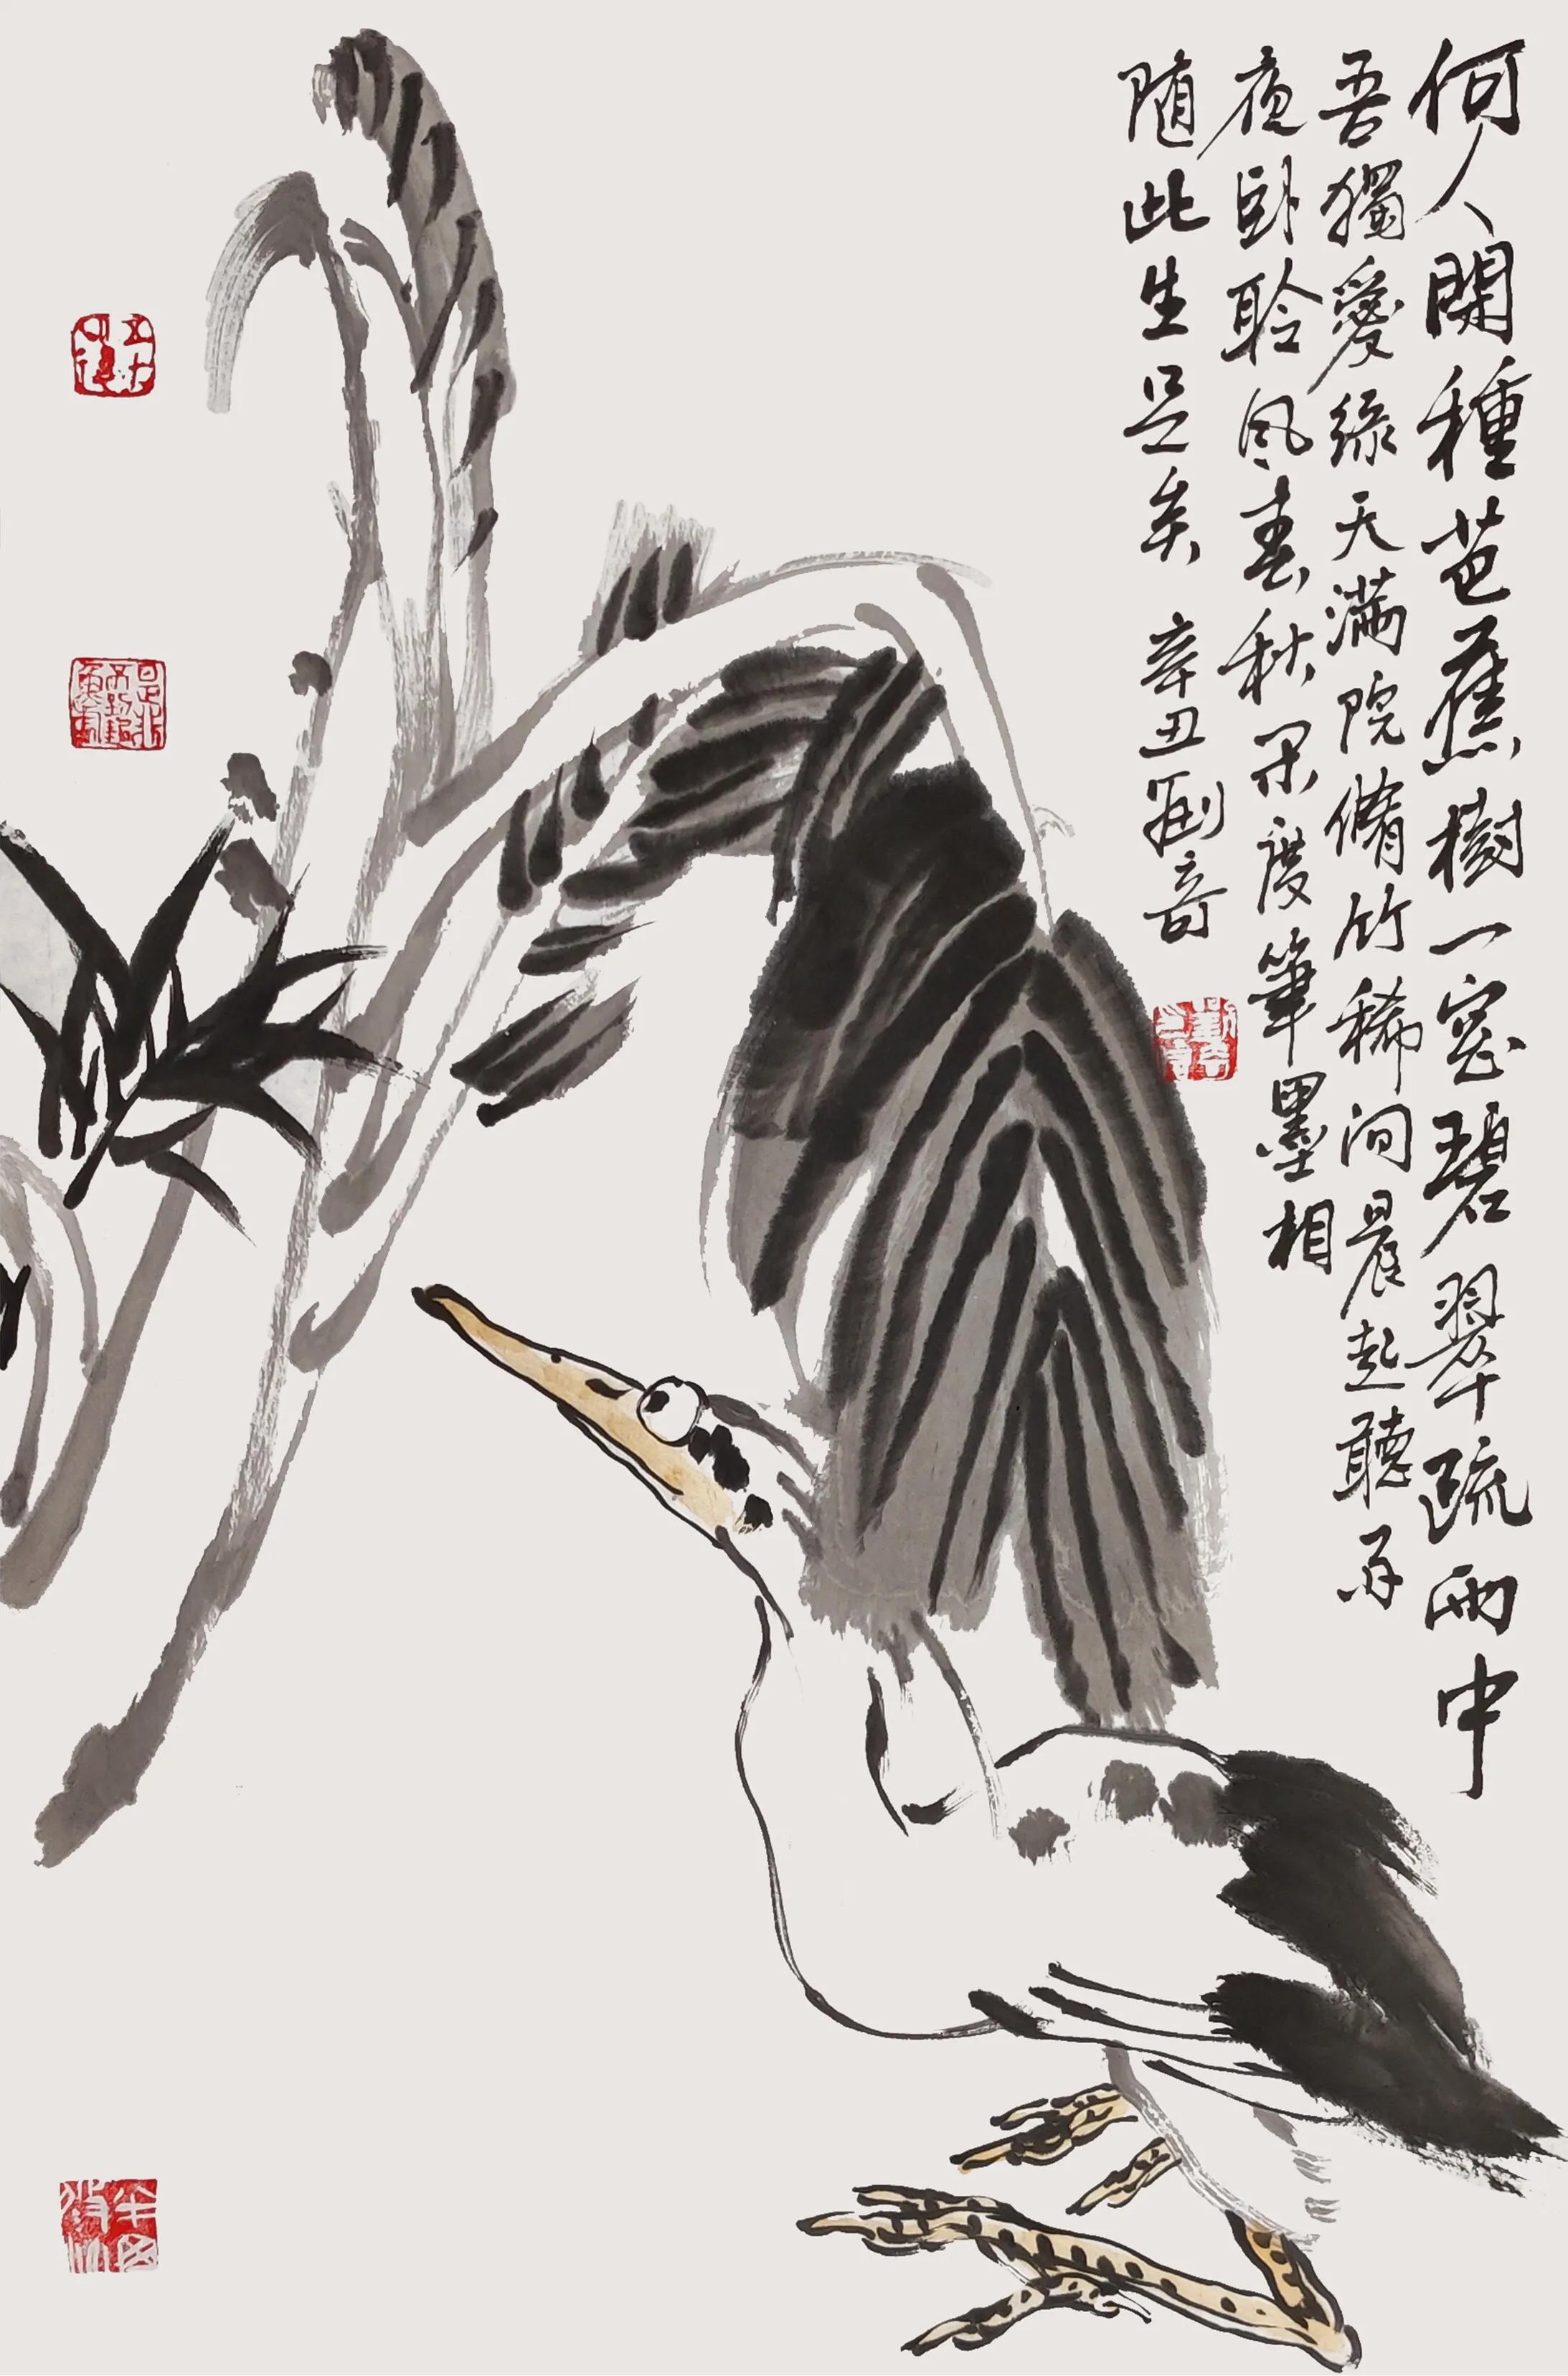 何人閑種芭蕉樹一窓碧翠疏雨中
吾獨愛綠天滿院脩竹稀間晨起聽雨
夜卧聆風春秋閑度筆墨相
随此生足矣 辛丑劉音